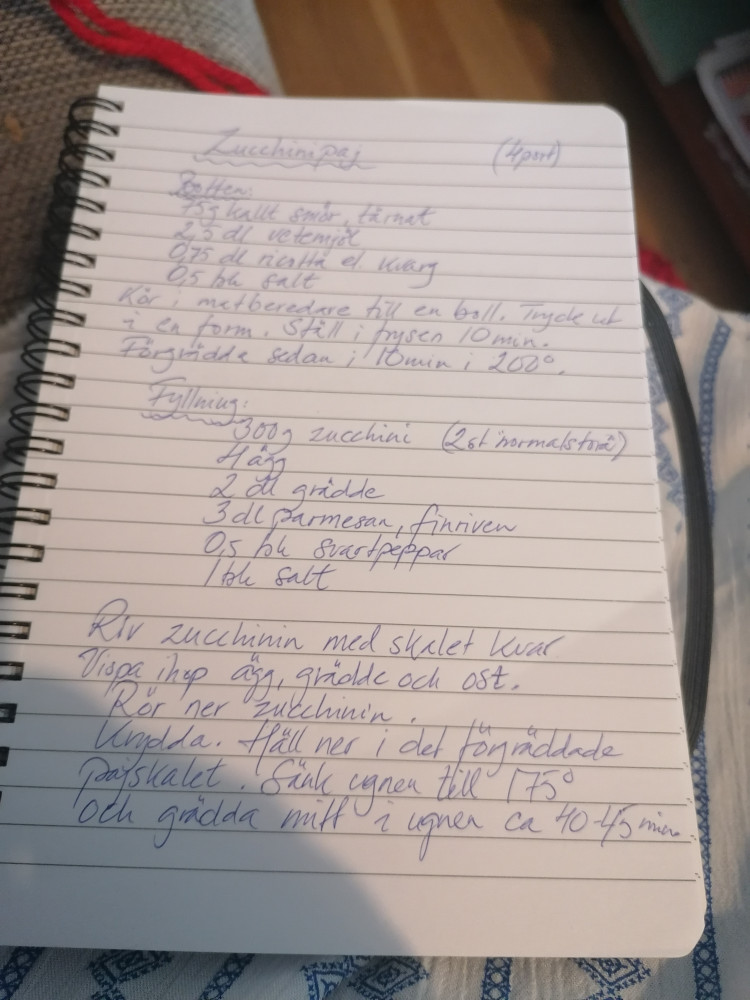 Zucchinipaj (4port)
Botten:
75g kallt smör, tärnat
2,5 dl vetemjöl
0,75 dl ricotta el. kvarg
0,5 tsk salt
Kör i matberedare till en boll. Tryck ut
i en form. Ställ i frysen 10 min.
Förgrädda sedan i 10min i 200°.
Fyllning:
300g zucchini (2st normalstora)
4 ägg
2 dl grädde
3 dl parmesan, finriven
0,5 tsk svartpeppar
1 tsk salt
Riv zucchinin med skalet kvar
Vispa ihop ägg, grädde och ost.
Rör ner zucchinin.
Krydda. Häll ner i det förgräddade
pajskalet. Sänk ugnen till 175°
och grädda mitt i ugnen ca 40-45 min.